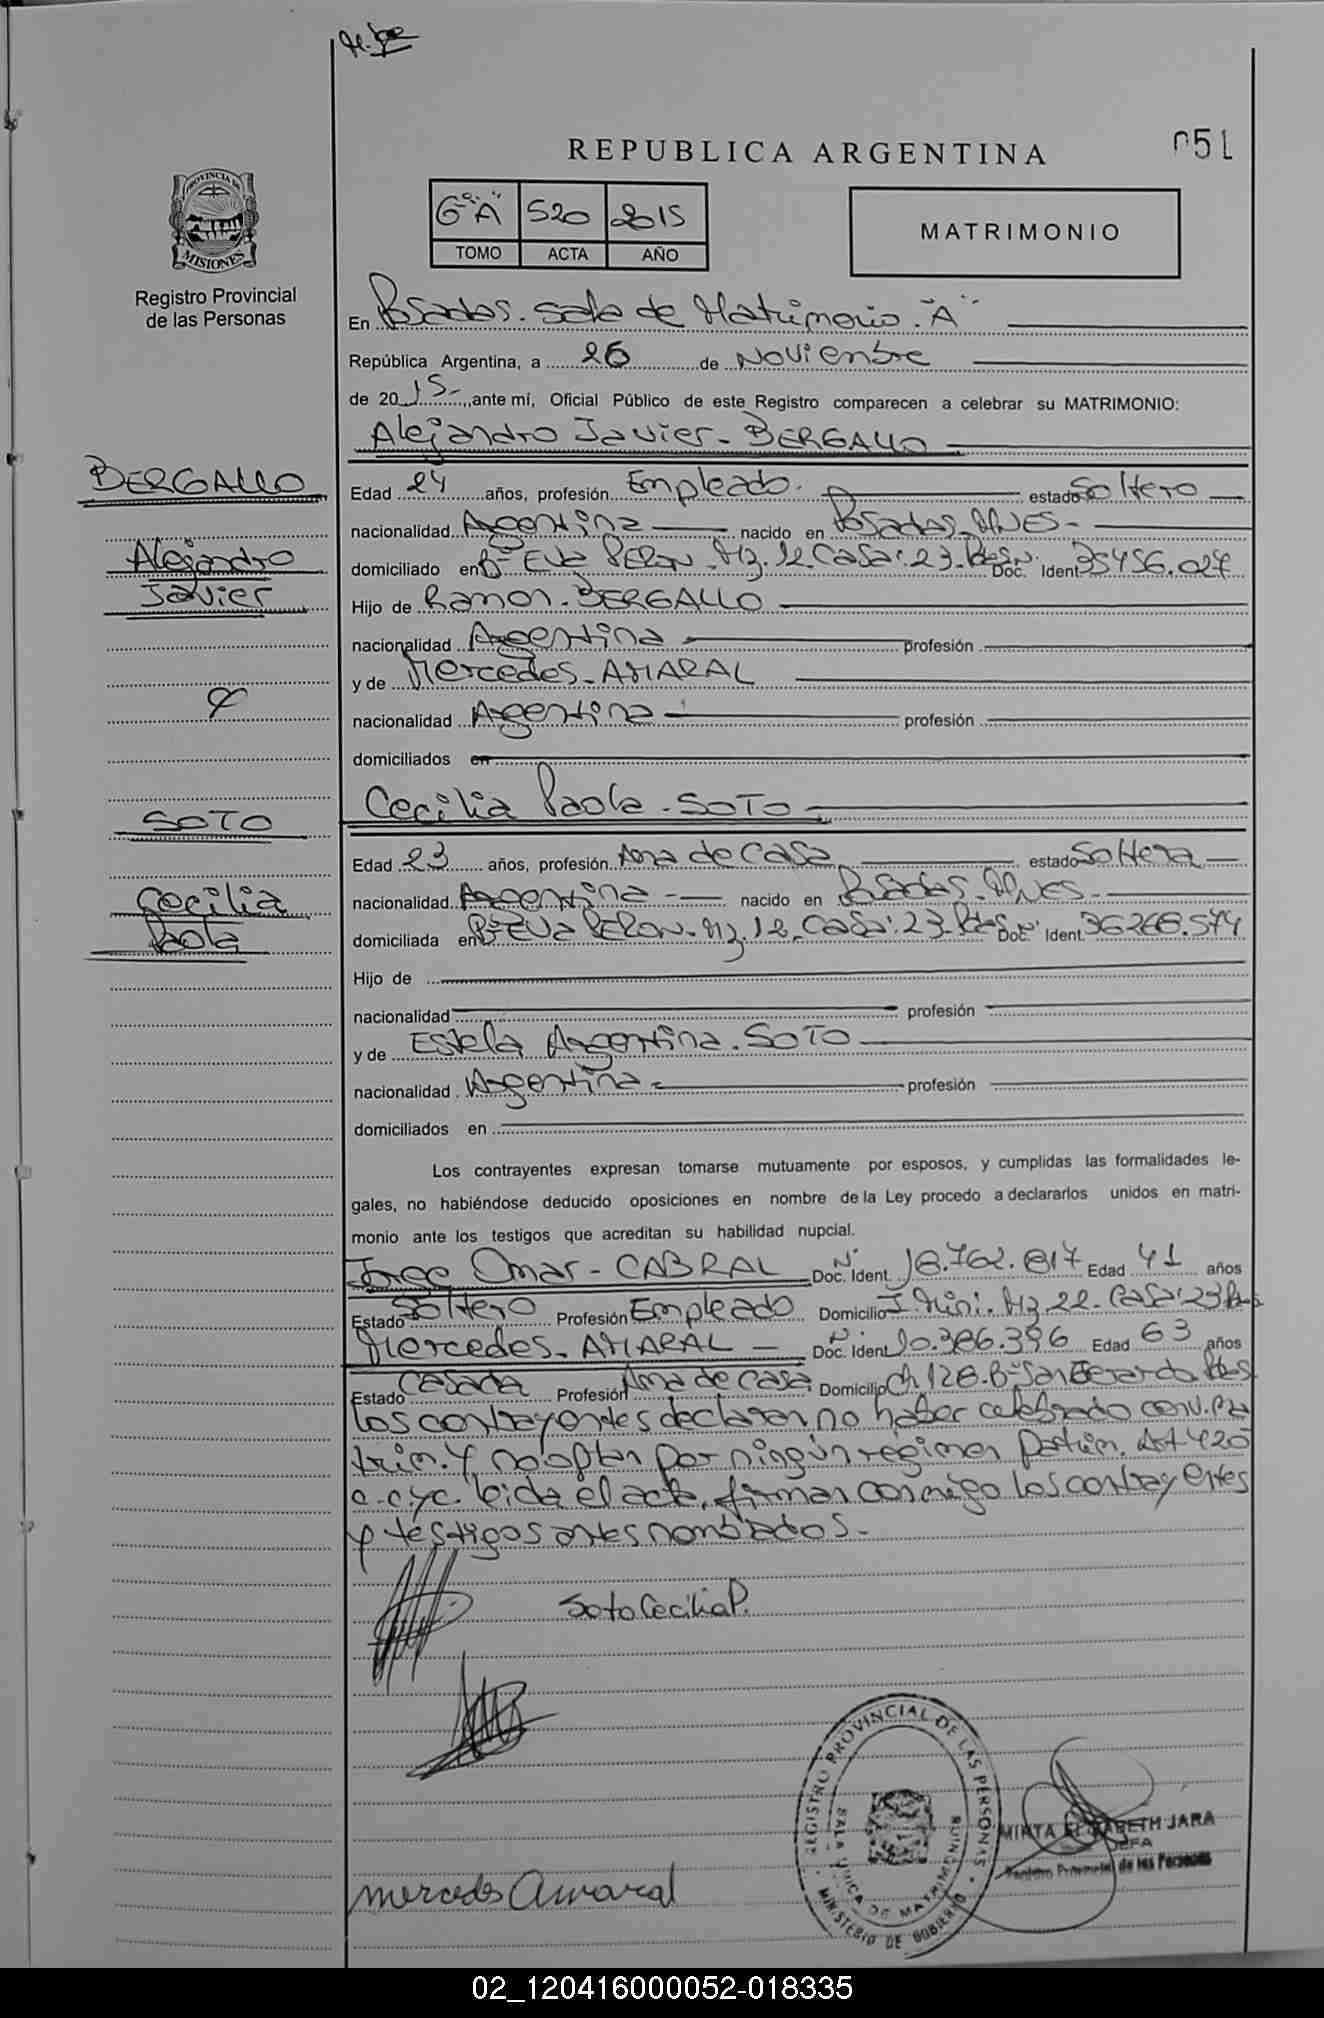 REPUBLICA ARGENTINA
051
PROVINCIA DE
MISIONES
Registro Provincial
de las Personas
6º "A" 520 2015
TOMO ACTA AÑO
MATRIMONIO
En Posadas. Sala de Matrimonio. "A"
República Argentina, a 26 de Noviembre
de 2015-, ante mí, Oficial Público de este Registro comparecen a celebrar su MATRIMONIO:
Alejandro Javier- BERGALLO
BERGALLO
Alejandro
Javier
Edad 24 años, profesión Empleado. estado Soltero
nacionalidad Argentina nacido en Posadas. Mnes-
domiciliado en Bº Eva PERON. Mz. 12. Casa: 23. Pdas. Nº Doc. Ident. 35456.027
Hijo de Ramon. BERGALLO
nacionalidad Argentina profesión
y de Mercedes- AMARAL
nacionalidad Argentina profesión
domiciliados en
Cecilia Paola- SOTO
y
SOTO
Cecilia
Paola
Edad 23 años, profesión Ama de casa estado Soltera
nacionalidad Argentina nacido en Posadas. Mnes.
domiciliada en Bº Eva PERON. Mz. 12. Casa: 23. Pdas. Nº Doc. Ident. 36268.574
Hijo de
nacionalidad profesión
y de Estela Argentina. SOTO
nacionalidad Argentina profesión
domiciliados en
Los contrayentes expresan tomarse mutuamente por esposos, y cumplidas las formalidades le-
gales, no habiéndose deducido oposiciones en nombre de la Ley procedo a declararlos unidos en matri-
monio ante los testigos que acreditan su habilidad nupcial.
Jorge Omar- CABRAL Nº Doc. Ident. 18.762.817 Edad 41 años
Estado Soltero Profesión Empleado Domicilio I. Mini. Mz. 22. Casa: 23 Pdas
Mercedes- AMARAL Nº Doc. Ident 10.386.396 Edad 63 años
Estado Casada Profesión Ama de casa Domicilio Ch 128. Bº San Gerardo. Pdas
Los contrayentes declaran no haber celebrado conv. Ma
trim. y no optan por ningún regimen Patrim. Art 420
c.c y c. Leida el acta, firman conmigo los contrayentes
y testigos antes nombrados.
Soto Cecilia P.
REGISTRO PROVINCIAL DE LAS PERSONAS
SALA UNICA DE MATRIMONIOS
MINISTERIO DE GOBIERNO
MIRTA ELISABETH JARA
JEFA
Registro Provincial de las Personas
mercedes Amaral
02_120416000052-018335